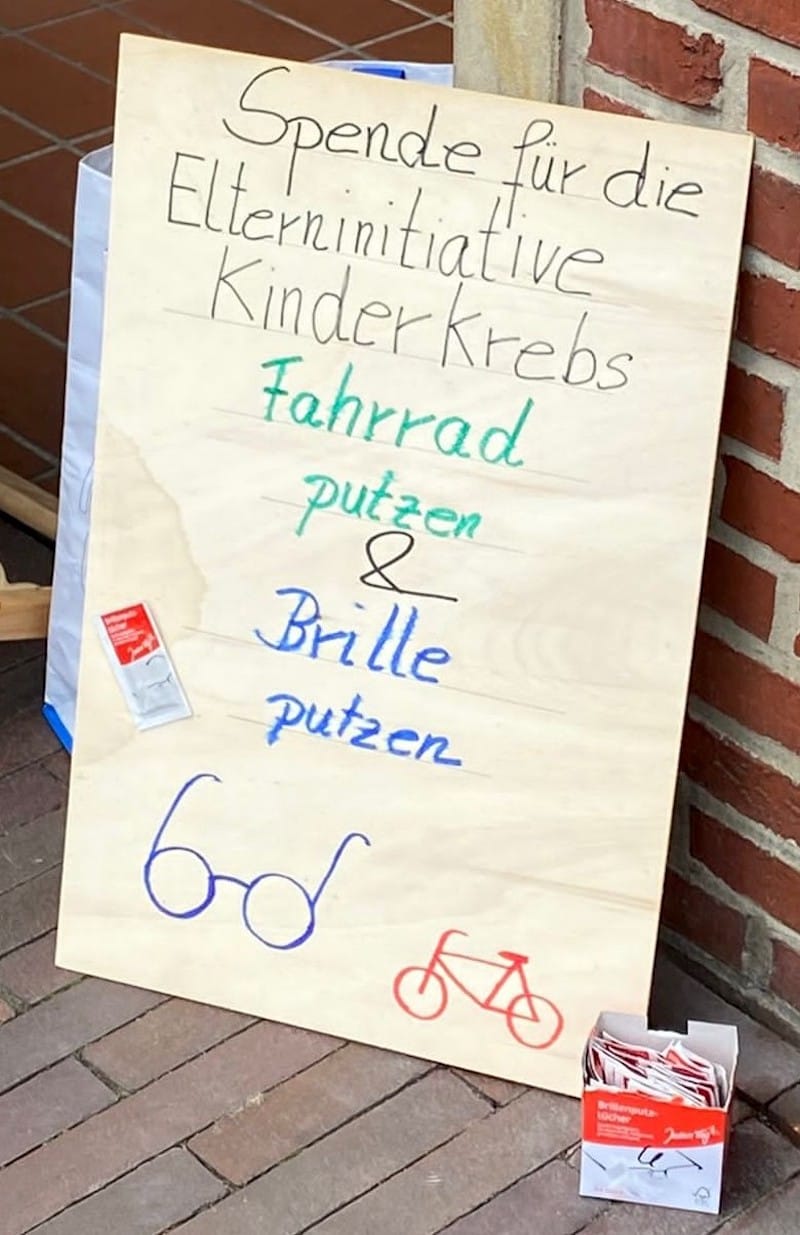 Spende für die
Elterninitiative
Kinderkrebs
Fahrrad
putzen
&
Brille
putzen
Brillenputz-
tücher
Brillenputz-
tücher
Jeden Tag